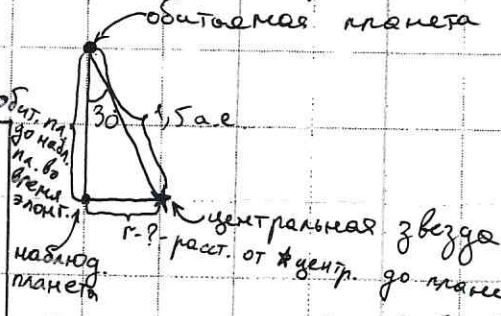 обитаемая планета
обит. пл.
до набл.
пл. во
время
элонг.
30
1,5 а.е.
центральная звезда
r-?- расст. от центр. до плане
наблюд.
планета